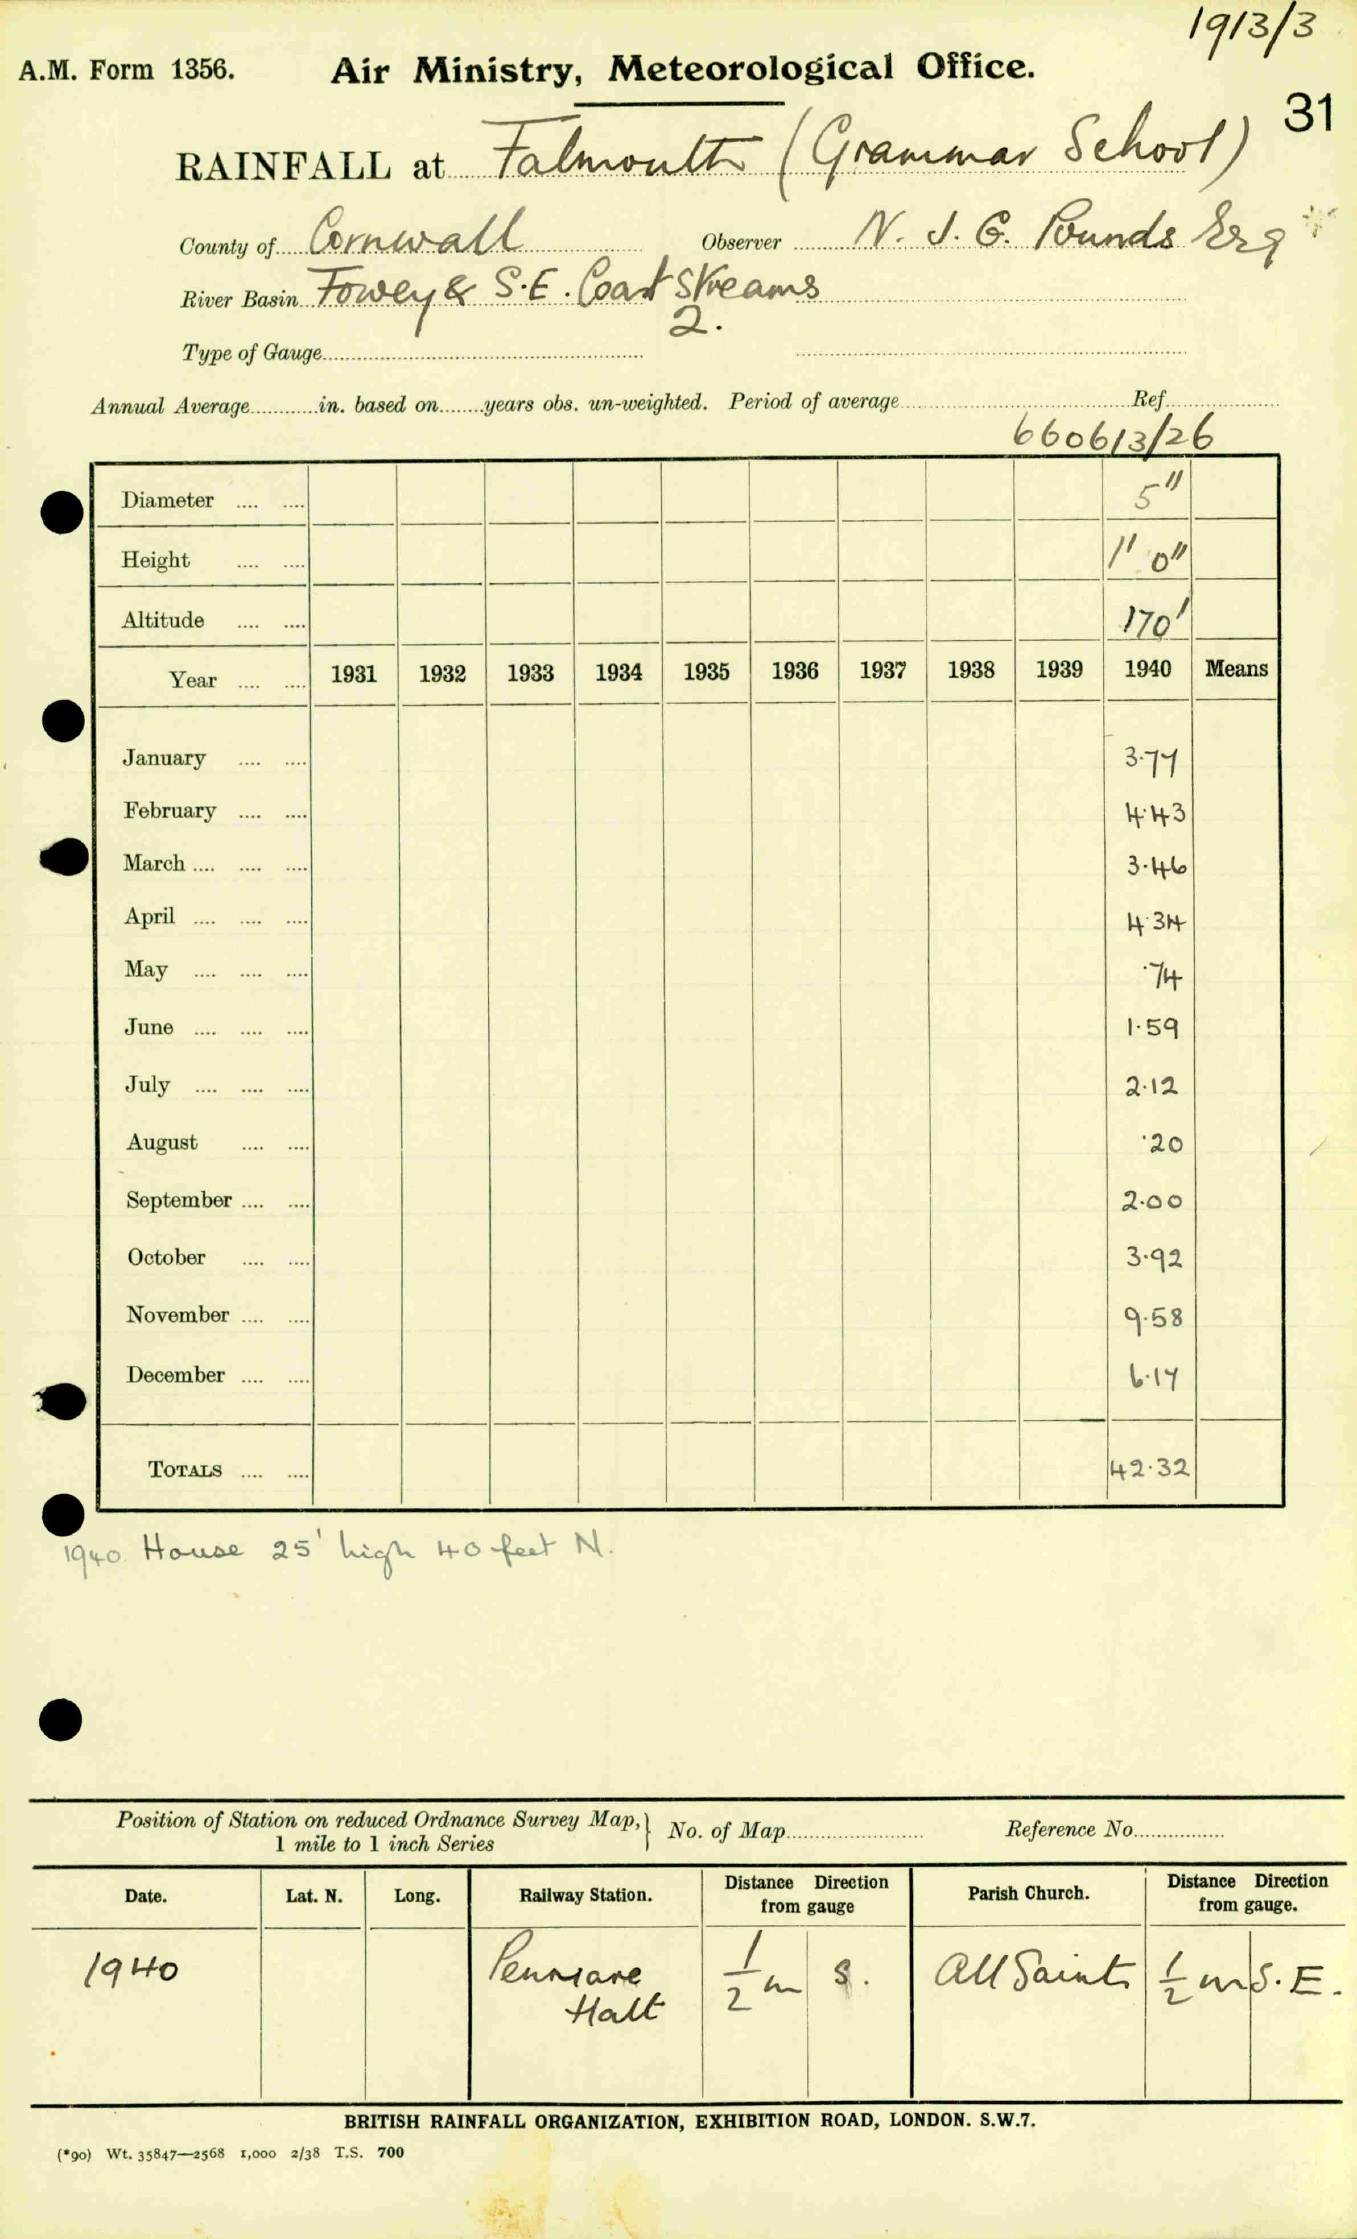 1913/3
A.M. Form 1356. Air Ministry, Meteorological Office.
31
RAINFALL at Falmouth (Grammar School)
County of Cornwall Observer N. J. G. Pounds Esq
River Basin Fowey & S.E. Coast Streams
2.
Type of Gauge
Annual Average in. based on years obs. un-weighted. Period of average Ref.
660613/26
Diameter 5"
Height 1' 0"
Altitude 170'
Year 1931 1932 1933 1934 1935 1936 1937 1938 1939 1940 Means
January 3.77
February 4.43
March 3.46
April 4.34
May .74
June 1.59
July 2.12
August .20
September 2.00
October 3.92
November 9.58
December 6.17
TOTALS 42.32
1940 House 25' high 40 feet N.
Position of Station on reduced Ordnance Survey Map, 1 mile to 1 inch Series } No. of Map Reference No.
Date. Lat. N. Long. Railway Station. Distance Direction from gauge Parish Church. Distance Direction from gauge.
1940 Penmare Halt 1/2 m S. All Saints 1/2 m S.E.
BRITISH RAINFALL ORGANIZATION, EXHIBITION ROAD, LONDON. S.W.7.
(*90) Wt. 35847—2568 1,000 2/38 T.S. 700